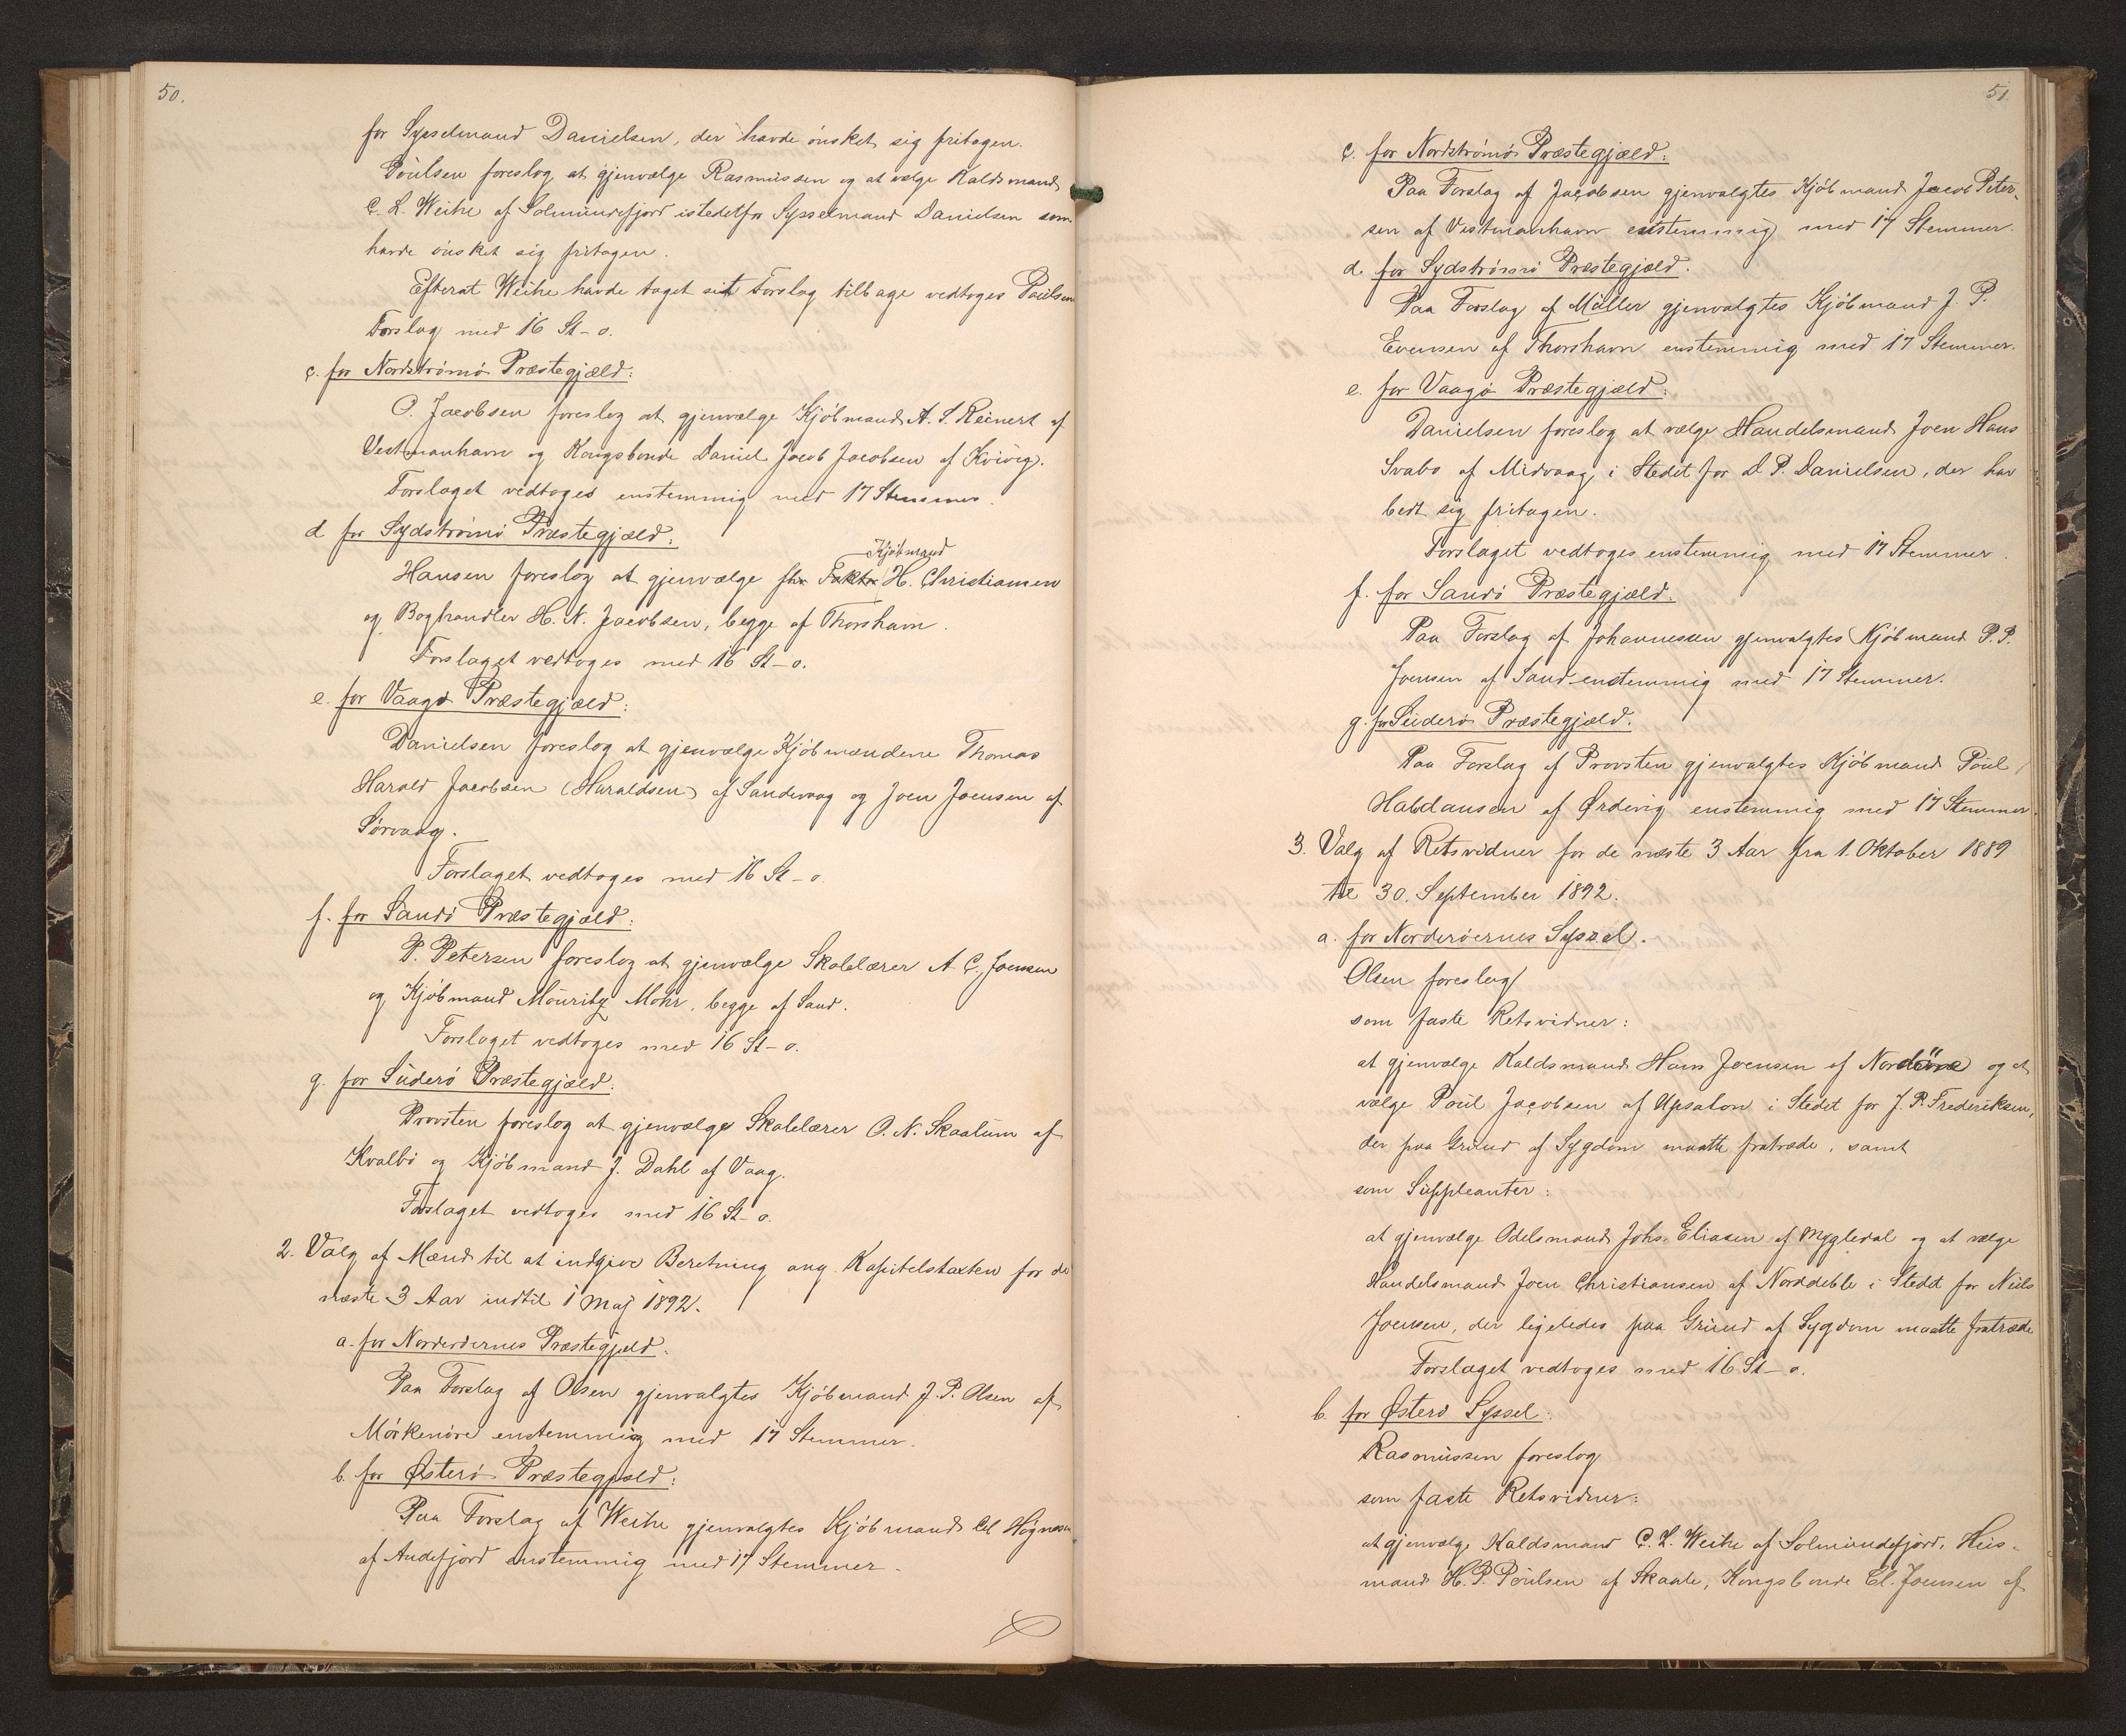 50.
for Sysselmand Danielsen, der havde ønsket sig fritagen.
Poulsen foreslog at gjenvælge Rasmussen og at vælge Kaldsmand
C. L. Weihe af Solmundefjord istedetfor Sysselmand Danielsen som
havde ønsket sig fritagen.
Efterat Weihe havde taget sit Forslag tilbage vedtoges Poulsens
Forslag med 16 St-o.
c. for Nordstrømø Præstegjæld:
O. Jacobsen foreslog at gjenvælge Kjøbmand A. S. Reinert af
Vestmanhavn og Kongsbonde Daniel Jacob Jacobsen af Kvivig.
Forslaget vedtoges enstemmig med 17 Stemmer.
d for Sydstrømø Præstegjæld:
Kjøbmand
Hansen foreslog at gjenvælge H. Christiansen
og Boghandler H. N. Jacobsen, begge af Thorshavn.
Forslaget vedtoges med 16 St-o.
e. for Vaagø Præstegjæld:
Danielsen foreslog at gjenvælge Kjøbmændene Thomas
Harald Jacobsen (Haraldsen) af Sandevaag og Joen Joensen af
Sørvaag.
Forslaget vedtoges med 16 St-o.
f. for Sandø Præstegjæld:
P. Petersen foreslog at gjenvælge Skolelærer A. C. Joensen
og Kjøbmand Mouritz Mohr, begge af Sand.
Forslaget vedtoges med 16 St-o.
g. for Suderø Præstegjæld:
Provsten foreslog at gjenvælge Skolelærer O. N. Skaalum af
Kvalbø og Kjøbmand J. Dahl af Vaag.
Forslaget vedtoges med 16 St-o.
2. Valg af Mænd til at indgive Beretning ang. Kapitelstaxten for de
næste 3 Aar indtil 1 Maj 1892.
a. for Norderøernes Præstegjæld.
Paa Forslag af Olsen gjenvalgtes Kjøbmand J. P. Olsen af
Mørkenøre enstemmig med 17 Stemmer.
b. for Østerø Præstegjæld:
Paa Forslag af Weihe gjenvalgtes Kjøbmand Høgnesen
af Andefjord enstemmig med 17 Stemmer.
51
c. for Nordstrømø Præstegjæld:
Paa Forslag af Jacobsen gjenvalgtes Kjøbmand Jacob Peter-
sen af Vestmanhavn enstemmig med 17 Stemmer.
d. for Sydstrømø Præstegjæld.
Paa Forslag af Müller gjenvalgtes Kjøbmand J. P.
Evensen af Thorshavn enstemmig med 17 Stemmer.
e. for Vaagø Præstegjæld:
Danielsen foreslog at vælge Handelsmand Joen Hans
Svabo af Midvaag, i Stedet for D. P. Danielsen, der har
bedt sig fritagen.
Forslaget vedtoges enstemmig med 17 Stemmer.
f. for Sandø Præstegjæld.
Paa Forslag af Johannessen gjenvalgtes Kjøbmand P. P.
Joensen af Sand enstemmig med 17 Stemmer.
g. for Suderø Præstegjæld.
Paa Forslag af Provsten gjenvalgtes Kjøbmand Poul
Habdansen af Ørdevig enstemmig med 17 Stemmer.
3. Valg af Retsvidner for de næste 3 Aar fra 1. Oktober 1889
til 30. September 1892.
a. for Norderøernes Syssel.
Olsen foreslog
som faste Retsvidner:
at gjenvælge Kaldsmand Hans Joensen af og at
vælge Poul Jacobsen af Upsalon i Stedet for J. P. Frederiksen,
der paa Grund af Sygdom maatte fratræde, samt
som Suppleanter:
at gjenvælge Odelsmand Johs. Eliasen af Mygledal og at vælge
Handelsmand Joen Christiansen af Norddeble i Stedet for Niels
Joensen, der ligeledes paa Grund af Sygdom maatte fratræde
Forslaget vedtoges med 16 St-o.
b. for Østerø Syssel:
Rasmussen foreslog
som faste Retsvidner:
at gjenvælge Kaldsmand C. L. Weihe af Solmundefjord, Huus-
mand H. P. Poulsen af Skaale, Kongsbonde Cl. Joensen af